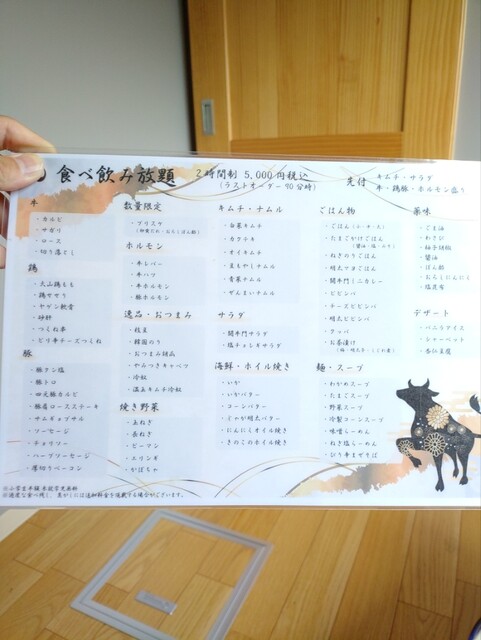 食べ飲み放題
2時間制 5,000円税込
(ラストオーダー90分時)
先付
キムチ・サラダ
牛・鶏豚・ホルモン盛り
牛
・カルビ
・サガリ
・ロース
・切り落とし
鶏
・大山鶏もも
・鶏ササリ
・ヤゲン軟骨
・砂肝
・つくね串
・ピリ辛チーズつくね
豚
・豚タン塩
・豚トロ
・四元豚カルビ
・豚肩ロースステーキ
・サムギョプサル
・ソーセージ
・チョリソー
・ハーブソーセージ
・厚切りベーコン
数量限定
・ブリスケ
ホルモン
・牛レバー
・牛ハツ
・牛ホルモン
・豚ホルモン
逸品・おつまみ
・枝豆
・韓国のり
・おつまみ胡瓜
・やみつきキャベツ
・冷奴
・温玉キムチ冷奴
焼き野菜
・玉ねぎ
・長ねぎ
・ピーマン
・エリンギ
・かぼちゃ
キムチ・ナムル
・白菜キムチ
・カクテキ
・オイキムチ
・豆もやしナムル
・青菜ナムル
・ぜんまいナムル
サラダ
・闘牛門サラダ
・塩チョレギサラダ
海鮮・ホイル焼き
・いか
・いかバター
・コーンバター
・じゃが明太バター
・にんにくオイル焼き
・きのこのホイル焼き
ごはん物
・ごはん(小・中・大)
・たまごかけごはん
・ねぎのりごはん
・明太マヨごはん
・闘牛門ミニカレー
・ビビンバ
・チーズビビンバ
・明太ビビンバ
・クッパ
・お茶漬け
麺・スープ
・わかめスープ
・たまごスープ
・野菜スープ
・冷製コーンスープ
・味噌らーめん
・ねぎ塩らーめん
・ぴり辛まぜそば
薬味
・ごま油
・わさび
・柚子胡椒
・醤油
・ぽん酢
・おろしにんにく
・塩昆布
デザート
・バニラアイス
・シャーベット
・杏仁豆腐
※小学生半額 未就学児無料
※過度な食べ残し、焦がしには追加料金を頂戴する場合がございます。